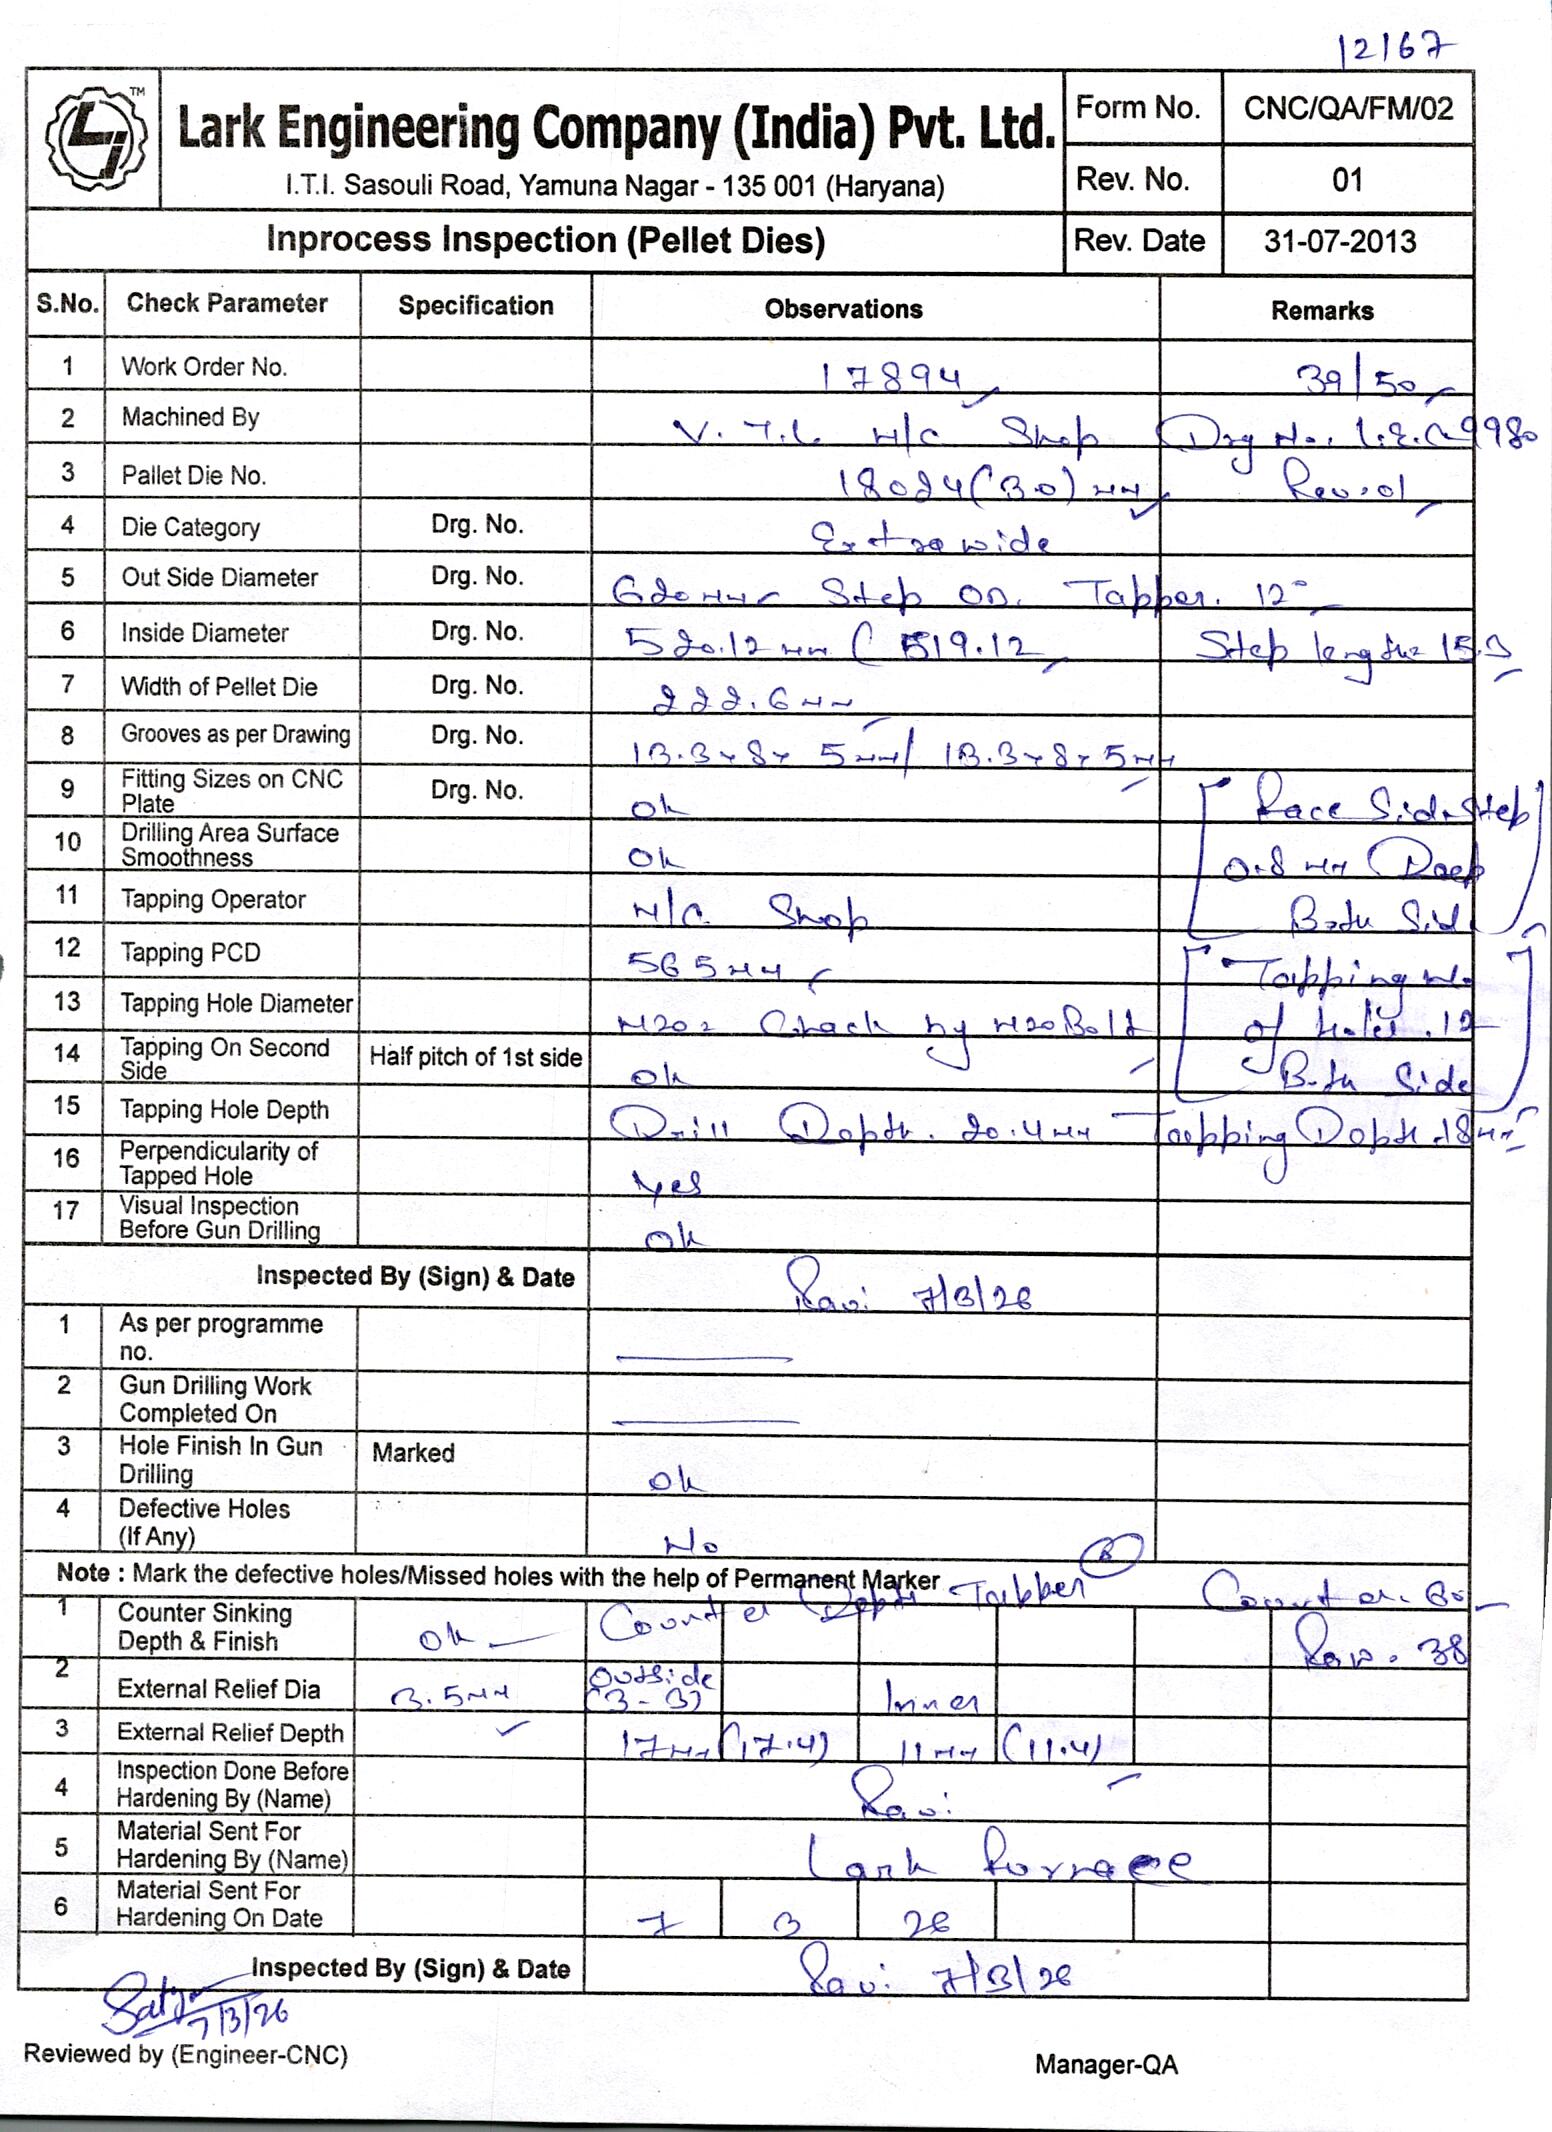 12167
TM
Lark Engineering Company (India) Pvt. Ltd.
I.T.I. Sasouli Road, Yamuna Nagar - 135 001 (Haryana)
Form No. CNC/QA/FM/02
Rev. No. 01
Inprocess Inspection (Pellet Dies) Rev. Date 31-07-2013
S.No. Check Parameter Specification Observations Remarks
1 Work Order No. 17894 39/50
2 Machined By V.T.L M/C Shop Drg No. L.E.C 9980
3 Pallet Die No. 18024(30)mm Rev.01
4 Die Category Drg. No. Extra wide
5 Out Side Diameter Drg. No. 620mm Step OD. Tapper. 12°
6 Inside Diameter Drg. No. 520.12mm ( 519.12 Step length 15.3
7 Width of Pellet Die Drg. No. 222.6mm
8 Grooves as per Drawing Drg. No. 13.3x8x 5mm/ 13.3x8x5mm
9 Fitting Sizes on CNC Plate Drg. No. Ok Race Side Step
10 Drilling Area Surface Smoothness Ok 0.8 mm Deep
11 Tapping Operator M/C Shop Both Side
12 Tapping PCD 565mm Tapping No.
13 Tapping Hole Diameter M20 = Check by M20 Bolt of holes. 12
14 Tapping On Second Side Half pitch of 1st side Ok Both Side
15 Tapping Hole Depth Drill Depth. 20.4mm Tapping Depth 18mm
16 Perpendicularity of Tapped Hole Yes
17 Visual Inspection Before Gun Drilling Ok
Inspected By (Sign) & Date Ravi 7/3/26
1 As per programme no.
2 Gun Drilling Work Completed On
3 Hole Finish In Gun Drilling Marked Ok
4 Defective Holes (If Any) No
Note : Mark the defective holes/Missed holes with the help of Permanent Marker
1 Counter Sinking Depth & Finish Ok Counter Depth Tapper Counter. 60
Row. 38
2 External Relief Dia 3.5mm Outside (3-3) Inner
3 External Relief Depth 17mm (17.4) 11mm (11.4)
4 Inspection Done Before Hardening By (Name) Ravi
5 Material Sent For Hardening By (Name) Lark Furnace
6 Material Sent For Hardening On Date 7 3 26
Inspected By (Sign) & Date Ravi 7/3/26
7/3/26
Reviewed by (Engineer-CNC) Manager-QA